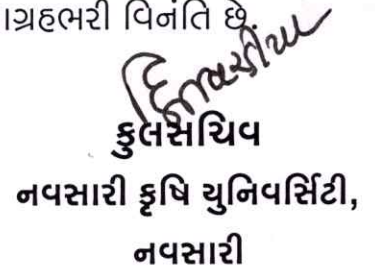 ાગ્રહભરી વિનંતિ છે.
કુલસચિવ
નવસારી કૃષિ યુનિવર્સિટી,
નવસારી